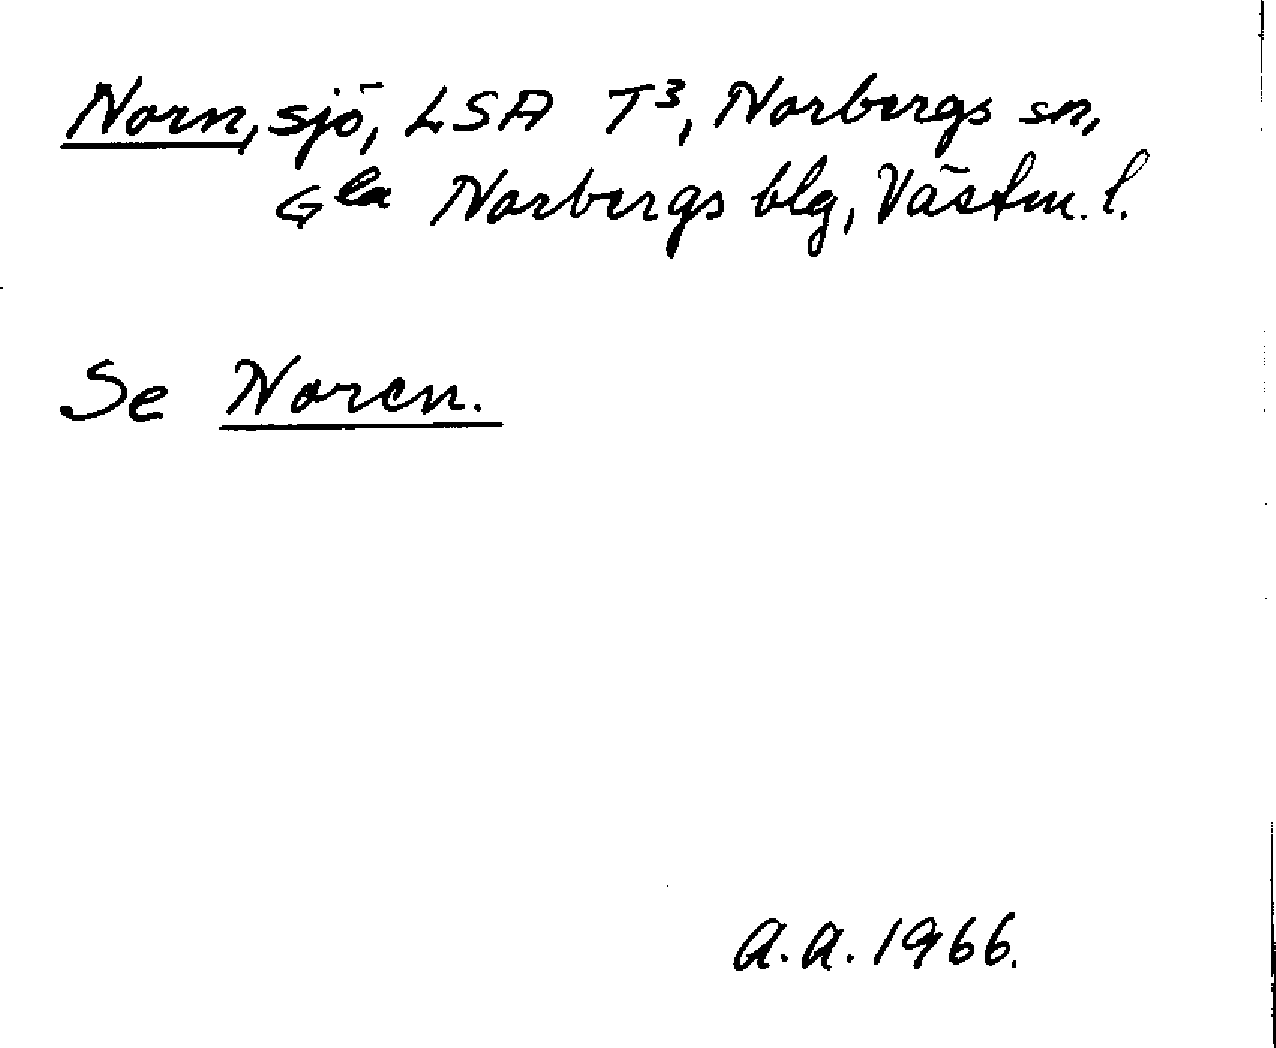 Norn, sjö, LSA T³, Norbergs sn,
Gla Norbergs blg, Västm. l.
Se Noren.
A.A. 1966.